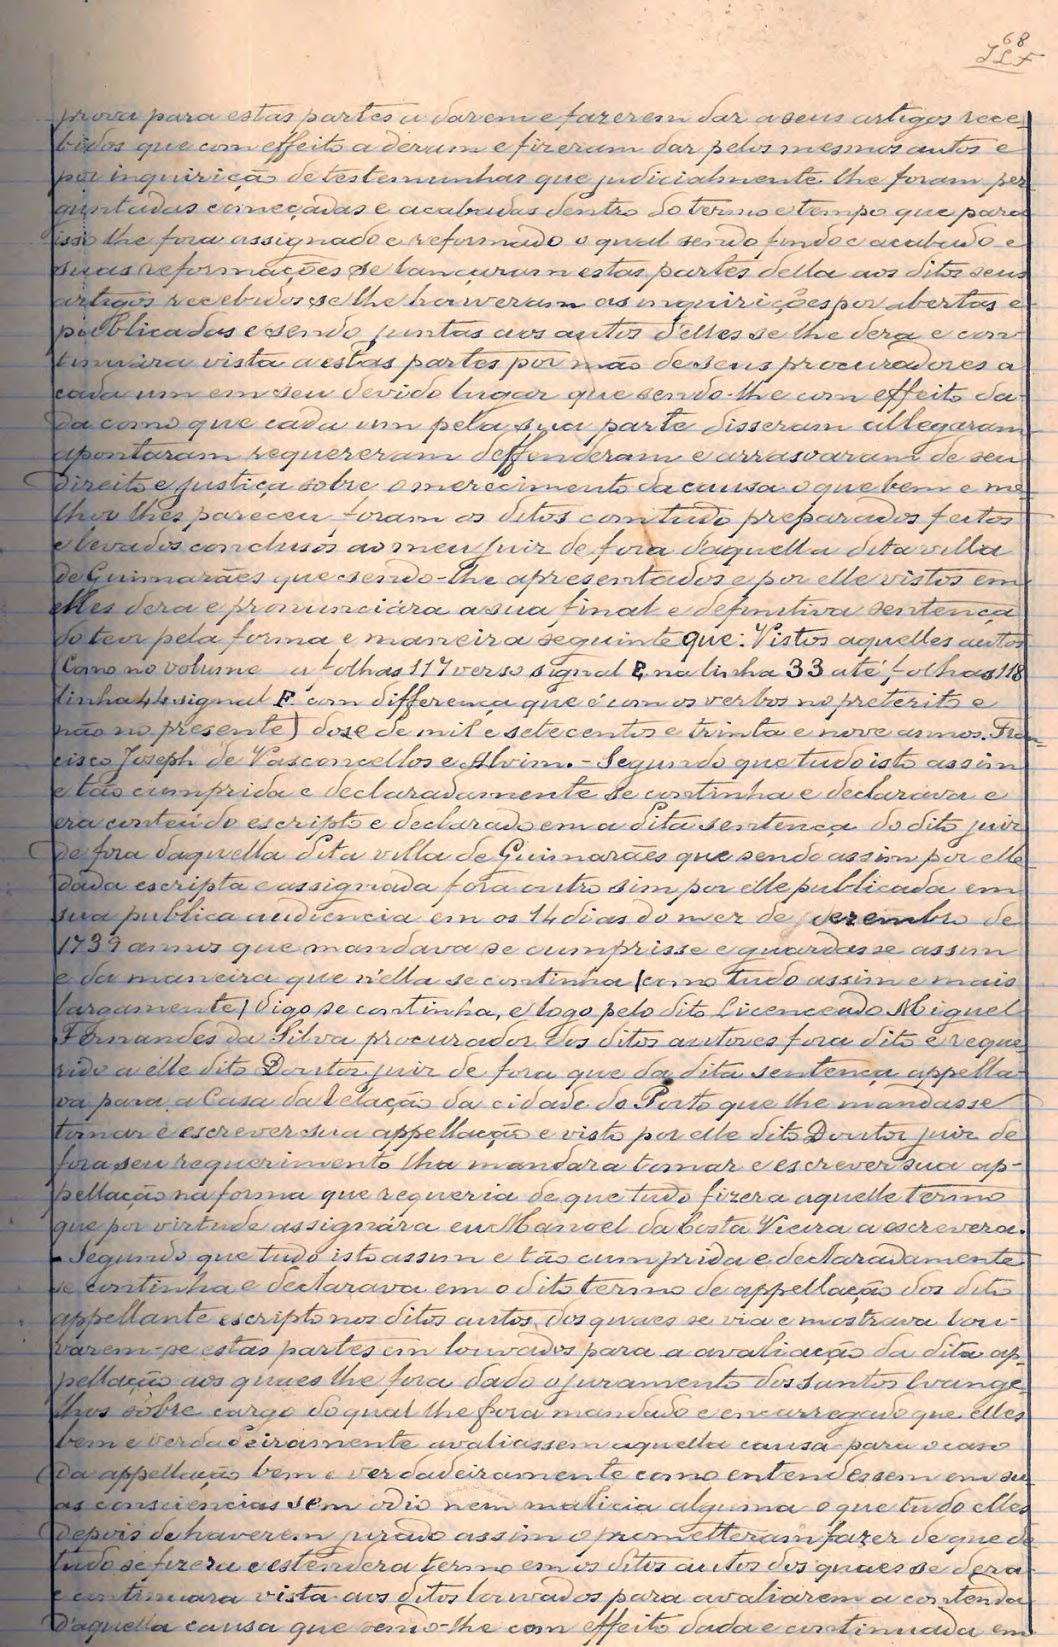 68
prova para estas partes a darem e fazerem dar a seus artigos rece-
bidos que com effeito a deram e fizeram dar pelos mesmos autos e
por inquirição de testemunhas que judicialmente lhe foram per
guntadas começadas e acabadas dentro do termo e tempo que para
isso lhe fora assignado e reformado o qual sendo findo e acabado e
suas reformações se lançaram estas partes della aos ditos seus
artigos recebidos e se lhe houveram as inquirições por abertas e
publicadas e sendo juntas aos autos d'elles se lhe dera e con
tinuára vista a estas partes por mão de seus procuradores a
cada um em seu devido lugar que sendo-lhe com effeito da-
da como que cada um pela sua parte disseram allegaram
apontaram requereram deffenderam e arrasoaram de seu
direito e justiça sobre o merecimento da causa o que bem e me
lhor lhes pareceu foram os ditos com tudo preparados feitos
e levados conclusos ao meu juiz de fora d'aquella dita villa
de Guimarães que sendo-lhe apresentados e por elle vistos em
elles dera e pronunciára a sua final e definitiva sentença
do teor pela forma e maneira seguinte que: Vistos aquelles autos
(Como no volume a folhas 117 verso signal E, na linha 33 até folhas 118
linha 44 signal F com differença que é com os verbos no preterito e
não no presente) dose de mil e setecentos e trinta e nove annos. Fran-
cisco Joseph de Vasconcellos e Alvim. - Segundo que tudo isto assim
e tão cumprida e declaradamente se continha e declarava e
era conteúdo escripto e declarado em a dita sentença do dito juiz
de fora daquella dita villa de Guimarães que sendo assim por elle
dada escripta e assignada fora outro sim por elle publicada em
sua publica audiencia em os 14 dias do mez de dezembro de
1739 annos que mandava se cumprisse e guardasse assim
e da maneira que n'ella se continha (como tudo assim e mais
largamente) digo se continha, e logo pelo dito Licenceado Miguel
Fernandes da Silva procurador dos ditos autores fora dito e reque
rido a elle dito Doutor juiz de fora que da dita sentença appella-
va para a Casa da Relação da cidade do Porto que lhe mandasse
tomar e escrever sua appellação e visto por elle dito Doutor juiz de
fora seu requerimento lha mandara tomar e escrever sua ap-
pellação na forma que requeria de que tudo fizera aquelle termo
que por virtude assignára eu Manoel da Costa Vieira a escrevera.
- Segundo que tudo isto assim e tão cumprida e declaradamente
se continha e declarava em o dito termo de appellação dos dito
appellante escripto nos ditos autos, dos quaes se via e mostrava lou-
varem-se estas partes em louvados para a avaliação da dita ap-
pellação aos quaes lhe fora dado o juramento dos Santos Evange-
lhos sobre cargo do qual lhe fora mandado e encarregado que elles
bem e verdadeiramente avaliassem aquella causa para o caso
da appellação bem e verdadeiramente como entendessem em su
as consciencias sem odio nem malicia alguma o que tudo elles
depois de haverem jurado assim o prometteram fazer de que de
tudo se fizera e estendera termo em os ditos autos dos quaes se dera
e continuara vista aos ditos louvados para avaliarem a contenda
d'aquella causa que sendo-lhe com effeito dada e continuada em